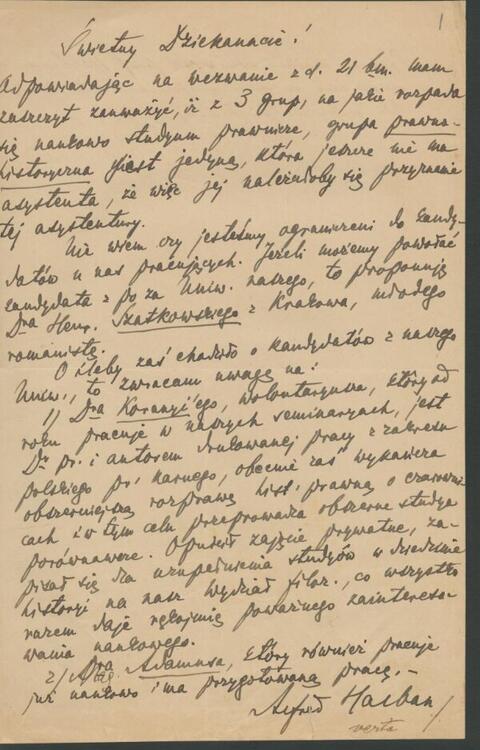 1
Świetny Dziekanacie!
Odpowiadając na wezwanie z d. 21 bm. mam
zaszczyt zauważyć, iż z 3 grup, na jakie rozpada
się naukowo studyum prawnicze, grupa prawno-
historyczna jest jedyną, która jeszcze nie ma
asystenta, że więc jej należałoby się przyznanie
tej asystentury.
Nie wiem czy jesteśmy ograniczeni do kandy-
datów u nas pracujących. Jeżeli możemy powołać
kandydata z poza Uniw. naszego, to proponuję
Dra Henr. Szatkowskiego z Krakowa, młodego
romanistę.
O ileby zaś chodziło o kandydatów z naszego
Uniw., to zwracam uwagę na:
1) Dra Koranyi'ego, wolontaryusza, który od
roku pracuje w naszych seminaryach, jest
Dr. pr. i autorem drukowanej pracy z zakresu
polskiego pr. karnego, obecnie zaś wykańcza
obszerniejszą rozprawę hist. prawną o czarowni-
cach i w tym celu przeprowadza obszerne studya
porównawcze. Opuścił zajęcie prywatne, za-
pisał się dla uzupełnienia studyów w dziedzinie
historyi na nasz wydział filoz., co wszystko
razem daje rękojmię poważnego zaintereso-
wania naukowego.
2) Dra Adamusa, który również pracuje
już naukowo i ma przygotowaną pracę.-
Alfred Halban
verte